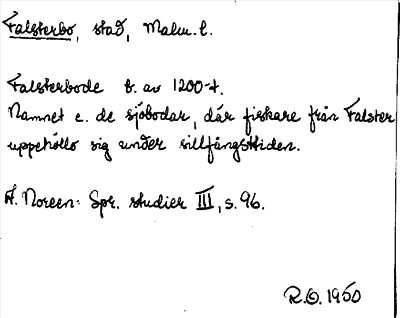 Falsterbo, stad, Malm. l.
Falsterbode b. av 1200-t.
Namnet e. de sjöbodar, där fiskare från Falster
uppehöllo sig under sillfångsttiden.
A. Noreen: Spr. studier III, s. 96.
R.O. 1950